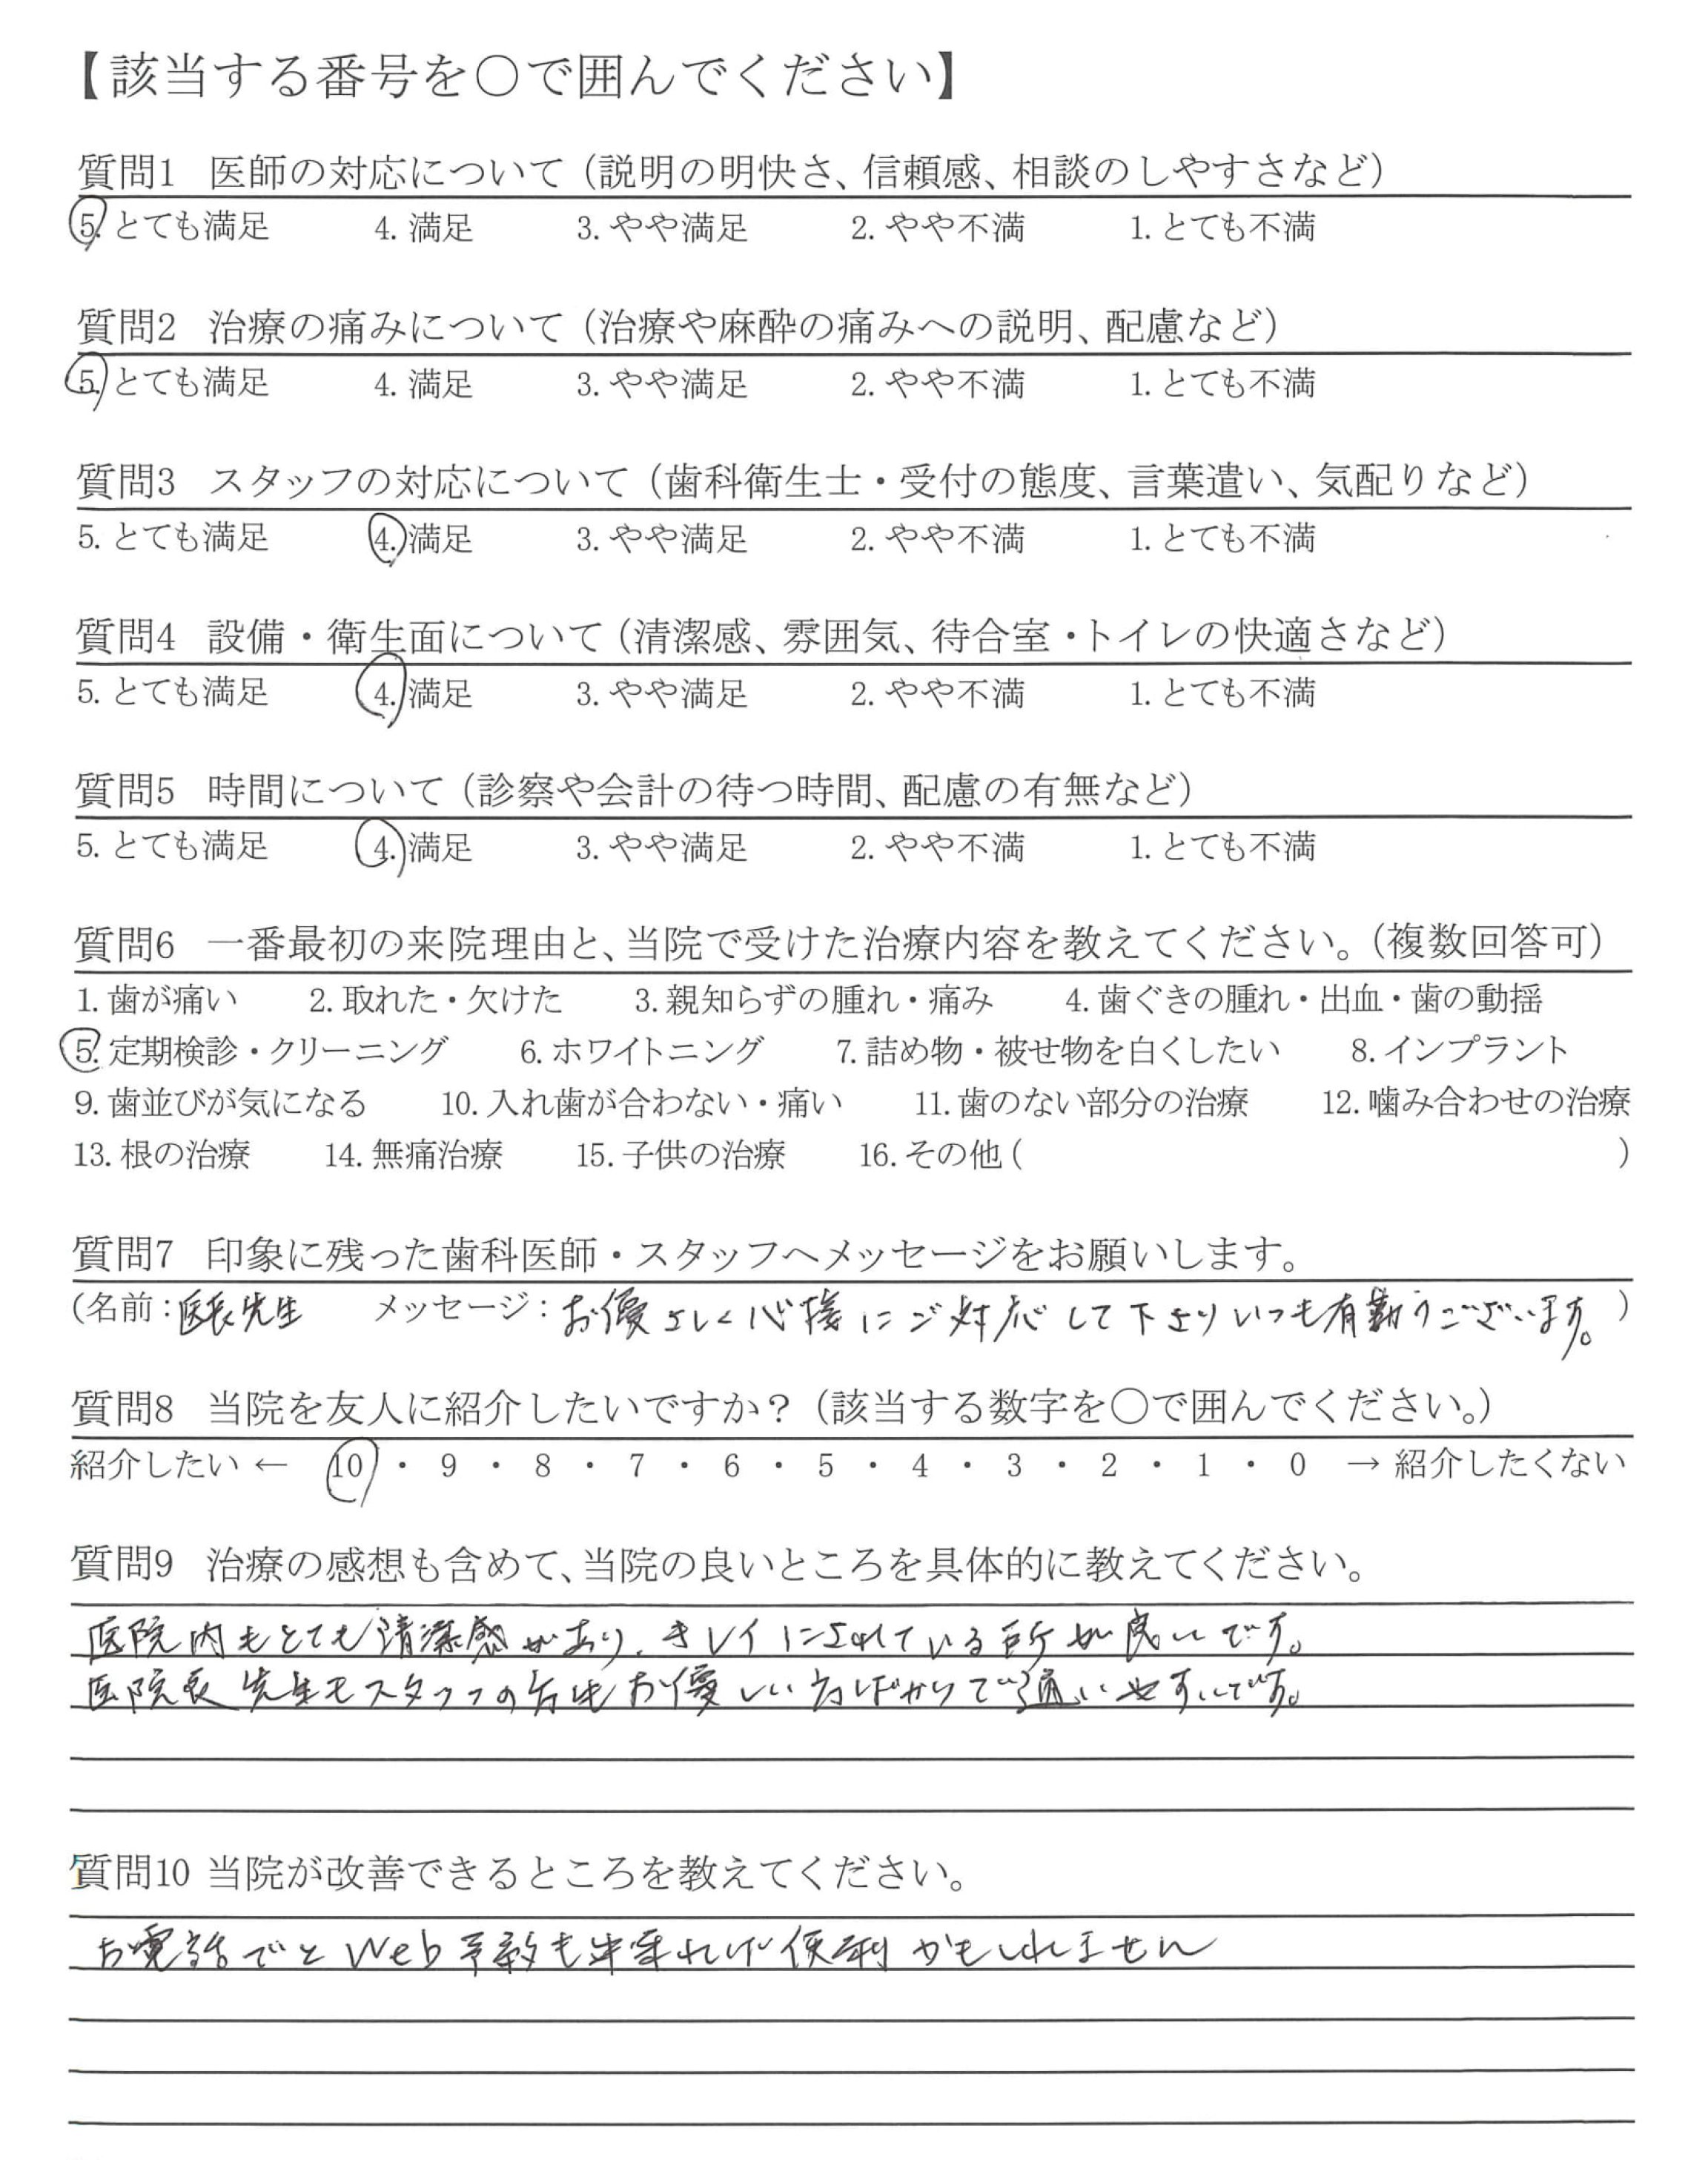 【該当する番号を○で囲んでください】
質問1 医師の対応について（説明の明快さ、信頼感、相談のしやすさなど）
5. とても満足 4. 満足 3. やや満足 2. やや不満 1. とても不満
質問2 治療の痛みについて（治療や麻酔の痛みへの説明、配慮など）
5. とても満足 4. 満足 3. やや満足 2. やや不満 1. とても不満
質問3 スタッフの対応について（歯科衛生士・受付の態度、言葉遣い、気配りなど）
5. とても満足 4. 満足 3. やや満足 2. やや不満 1. とても不満
質問4 設備・衛生面について（清潔感、雰囲気、待合室・トイレの快適さなど）
5. とても満足 4. 満足 3. やや満足 2. やや不満 1. とても不満
質問5 時間について（診察や会計の待つ時間、配慮の有無など）
5. とても満足 4. 満足 3. やや満足 2. やや不満 1. とても不満
質問6 一番最初の来院理由と、当院で受けた治療内容を教えてください。（複数回答可）
1. 歯が痛い 2. 取れた・欠けた 3. 親知らずの腫れ・痛み 4. 歯ぐきの腫れ・出血・歯の動揺
5. 定期検診・クリーニング 6. ホワイトニング 7. 詰め物・被せ物を白くしたい 8. インプラント
9. 歯並びが気になる 10. 入れ歯が合わない・痛い 11. 歯のない部分の治療 12. 噛み合わせの治療
13. 根の治療 14. 無痛治療 15. 子供の治療 16. その他（ ）
質問7 印象に残った歯科医師・スタッフへメッセージをお願いします。
（名前：医長先生 メッセージ：お優さしく 心接にご対応して下さりいつも有難うございます。）
質問8 当院を友人に紹介したいですか？（該当する数字を○で囲んでください。）
紹介したい ← 10 ・ 9 ・ 8 ・ 7 ・ 6 ・ 5 ・ 4 ・ 3 ・ 2 ・ 1 ・ 0 → 紹介したくない
質問9 治療の感想も含めて、当院の良いところを具体的に教えてください。
医院内もとても清潔感があり、キレイにされている所が良いです。
医院長先生もスタッフの方もお優しい方ばかりで通いやすいです。
質問10 当院が改善できるところを教えてください。
お電話でと Web 予約も出来れば便利かもしれません